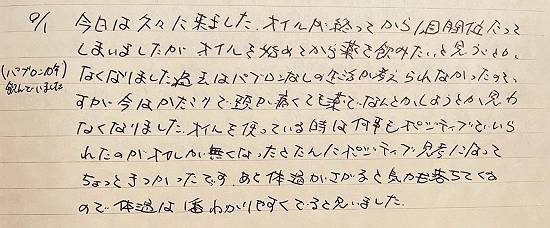 9/1 今日は久々に来ました. オイルが終ってから1週間位たって
しまいましたが オイルを始めてから薬を飲みたいと思うことが、
(パブロンが手 飲んでいました)
なくなりました. 過去はパブロンなしの生活が考えられなかったので、
すが 今はかたこりで頭が痛くても薬で、なんとかしようとか、思わ
なくなりました. オイルを使っている時は何事もポジティブでいら
れたのがオイルが無くなったとたんにポジティブ思考になって
ちょっときつかったです. あと体温がさがると気力も落ちてくる
ので 体温は1番わかりやすくでると思いました.